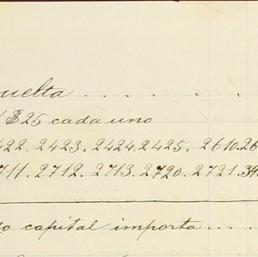 uelta . . . . . . .
$25 cada uno
422. 2423. 2424. 2425. 2610. 26
711. 2712. 2713. 2720. 2721. 39
o capital importa . . . .